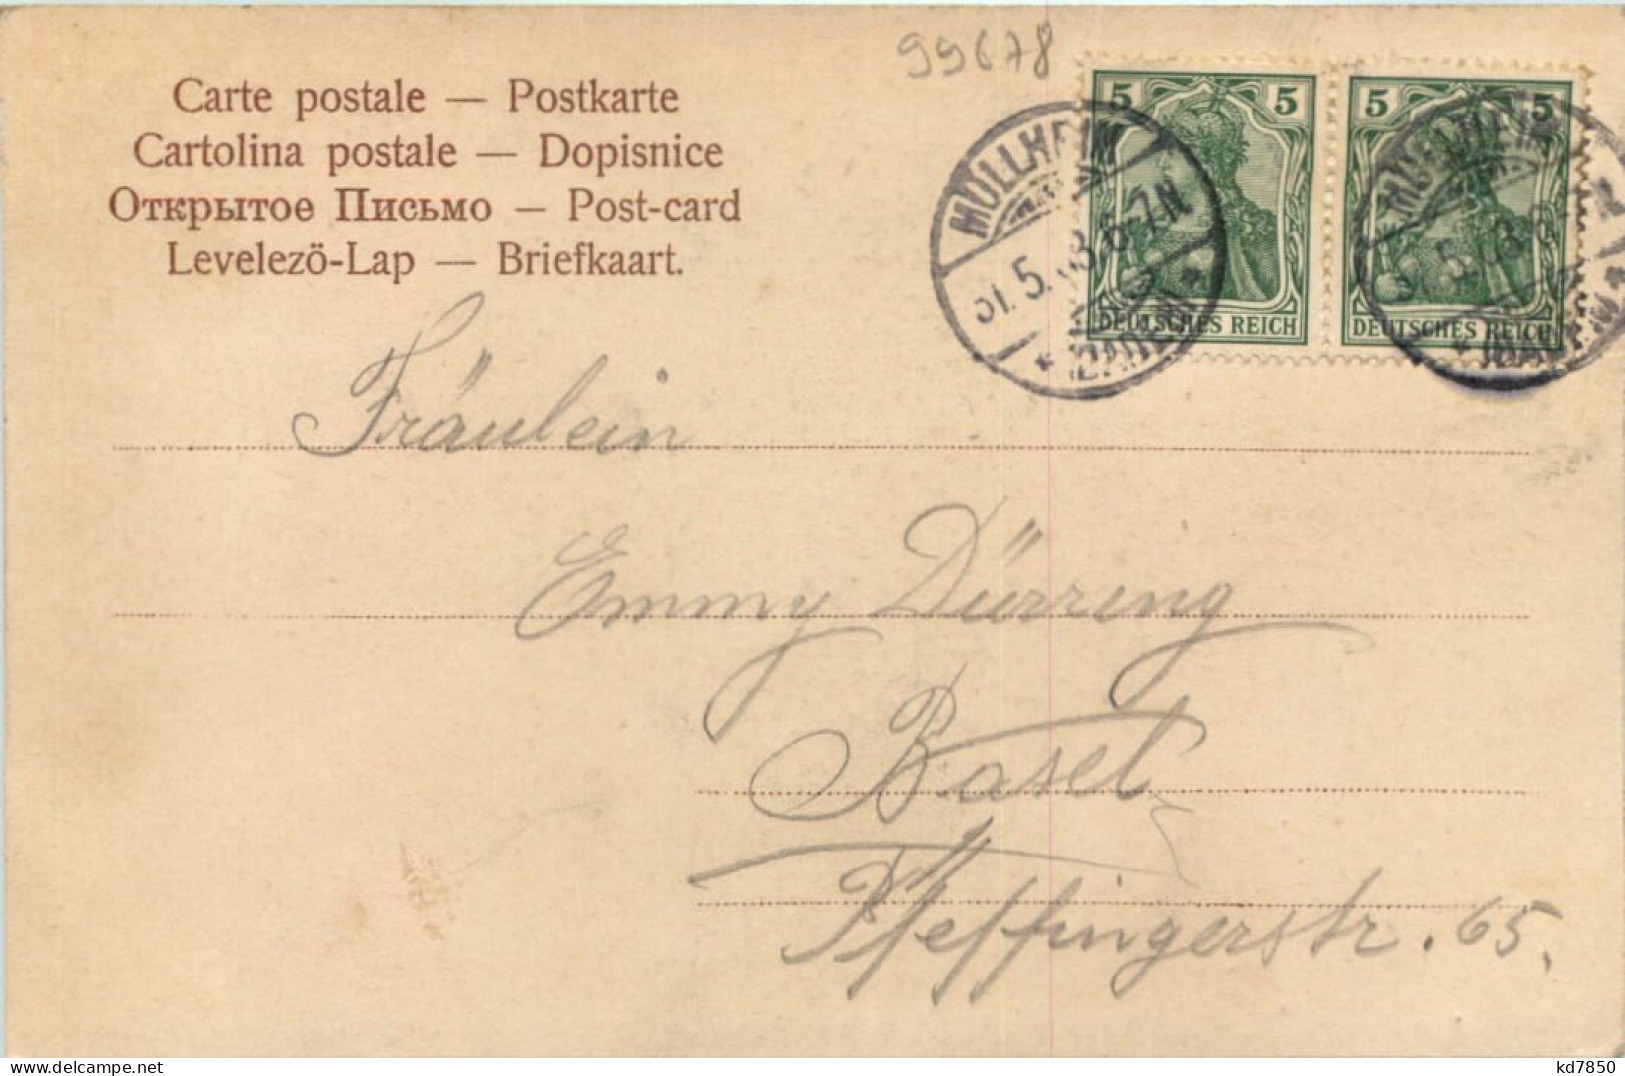 99678
Carte postale — Postkarte
Cartolina postale — Dopisnice
Открытое Письмо — Post-card
Levelezö-Lap — Briefkaart.
5 5
DEUTSCHES REICH
5 5
DEUTSCHES REICH
MÜLLHEIM
31.5.08.6-7N
* (BADEN) *
MÜLLHEIM
Fräulein
Emmy Dürring
Basel
Pfeffingerstr. 65.
delcampe.net
kd7850